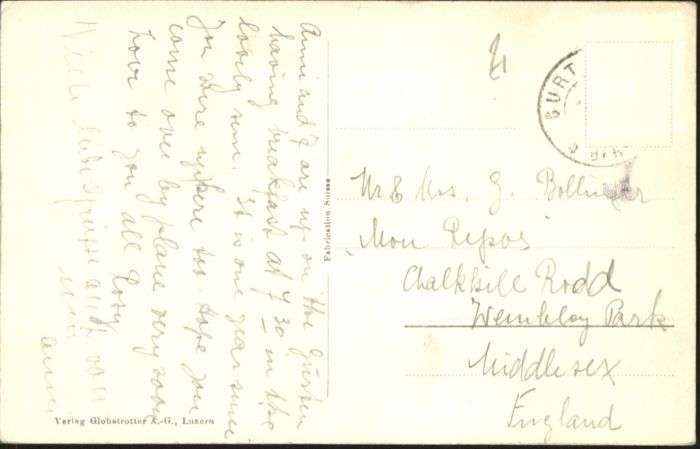 Anni and I are up on the Gurten
having breakfast at 7 30 – in the
lovely sun. It is one year since
you were up here too. Hope you
come over by plane very soon
Love to you all Rosy
Viele liebe Grüsse auch von
Anni
Fabrication Suisse
Verlag Globetrotter A.-G., Luzern
GURT
Mr & Mrs. G. Bollinger
Mon Repos
Chalkhill Road
Wembley Park
Middlesex
England